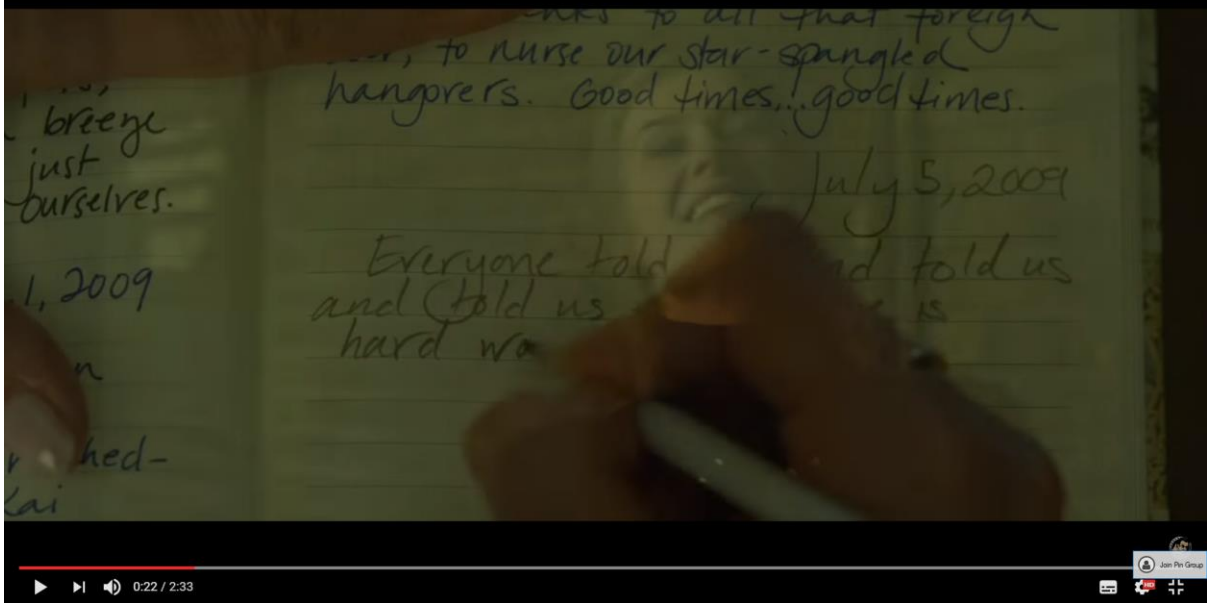 breeze
just
ourselves.
1, 2009
n
hed-
Kai
to all that foreign
to nurse our star-spangled
hangovers. Good times...good times.
July 5, 2009
Everyone told nd told us
and told us is
hard wo
0:22 / 2:33
HD
Join Pin Group